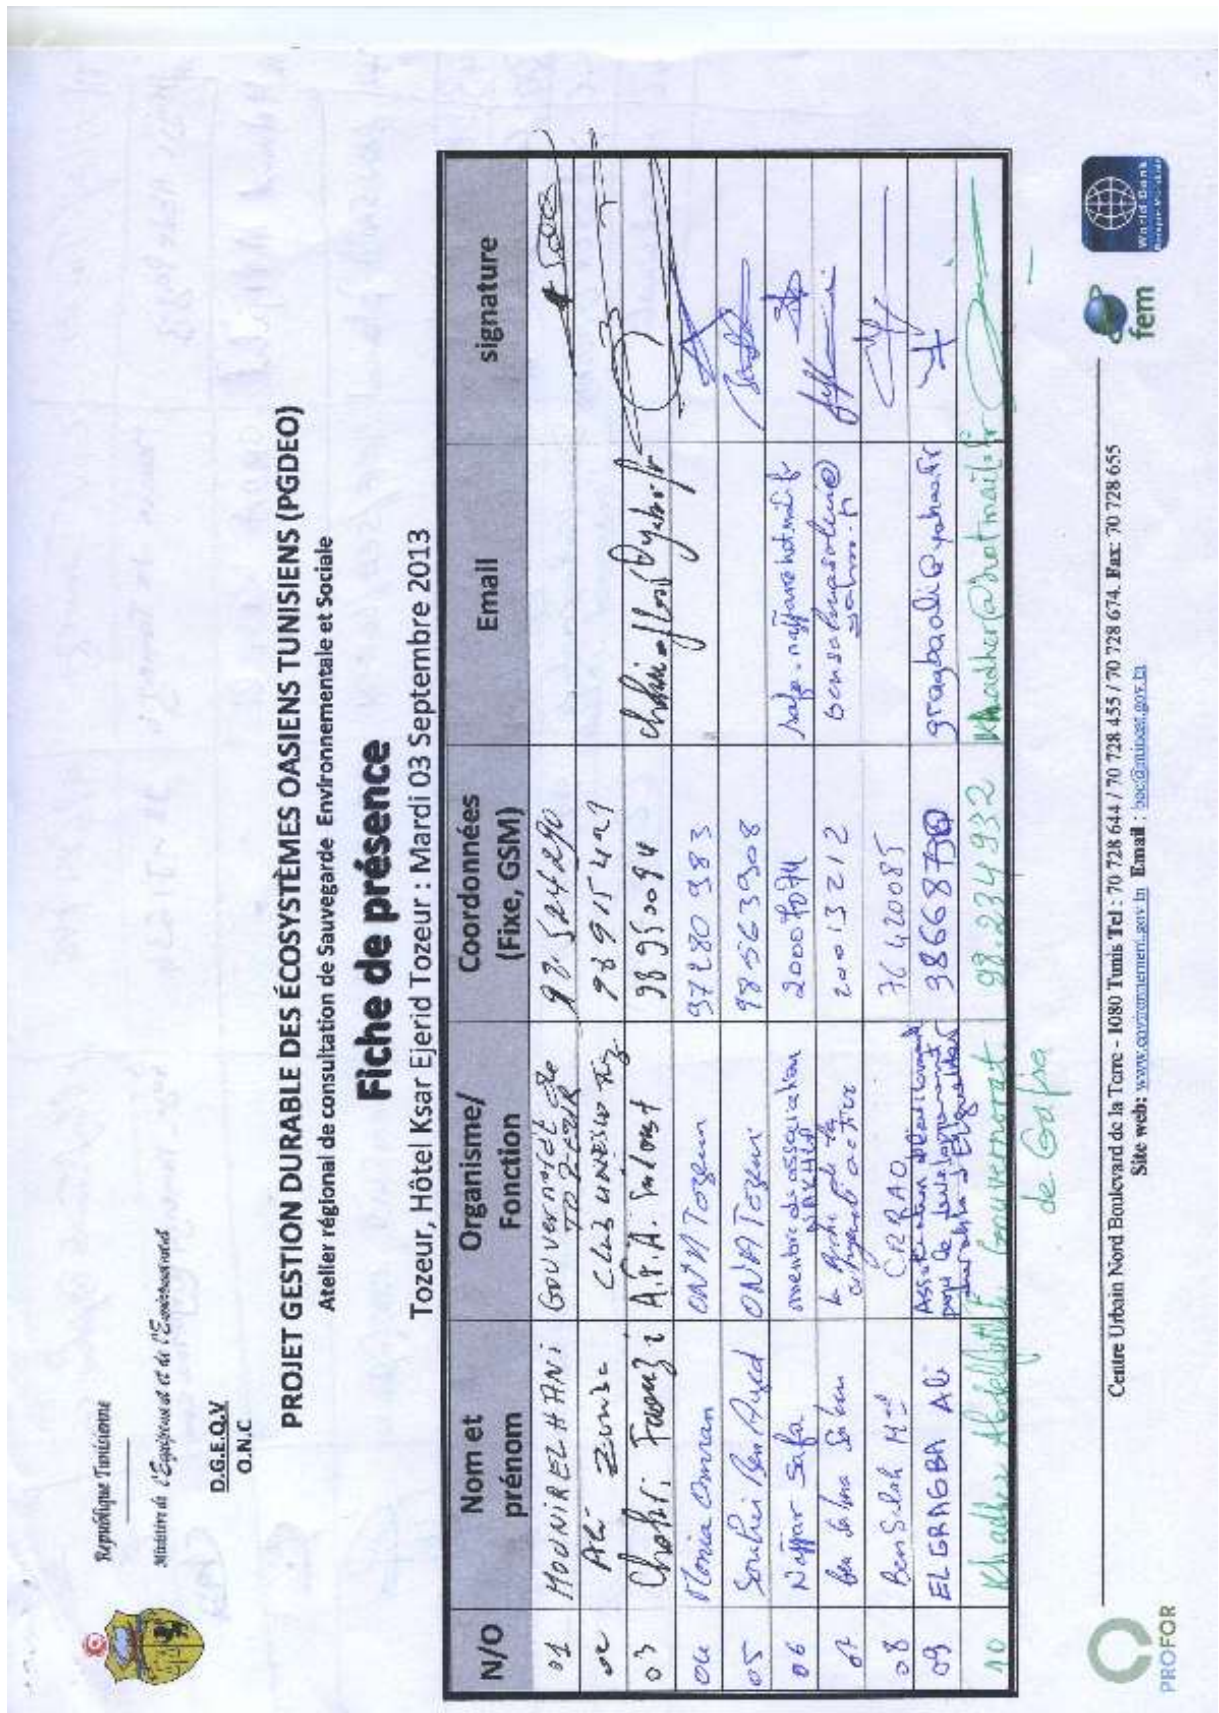 République Tunisienne
Ministère de l'Equipement et de l'Environnement
D.G.E.Q.V
O.N.C
PROJET GESTION DURABLE DES ÉCOSYSTÈMES OASIENS TUNISIENS (PGDEO)
Atelier régional de consultation de Sauvegarde Environnementale et Sociale
Fiche de présence
Tozeur, Hôtel Ksar Ejerid Tozeur : Mardi 03 Septembre 2013
N/O Nom et prénom Organisme/ Fonction Coordonnées (Fixe, GSM) Email signature
01 MOUNIR ELHANI Gouvernorat de TOZEUR 98.524290
02 Ali Club UNESCO 98915429
03 Chokri Faouzi 98950094
04 Monia Omran ONA Tozeur 97280983
05 Souhei Ben Ayed ONA Tozeur 98563908
06 Naffar Safa membre de association NAKHLA 20007074
07 Ben Salem la Ruche de active 20013212
08 Ben Salah Med CRRAO 76420085
09 ELGRAGBA Ali Association de développement d'ELguettar gragbaali@yahoo.fr
10 Khadher Abdellatif Gouvernorat de Gafsa 98.234932 Khadher@hotmail.fr
Centre Urbain Nord Boulevard de la Terre - 1080 Tunis Tel : 70 728 644 / 70 728 455 / 70 728 674. Fax: 70 728 655
Site web: www.environnement.gov.tn Email : boc@mineat.gov.tn
PROFOR
fem
World Bank